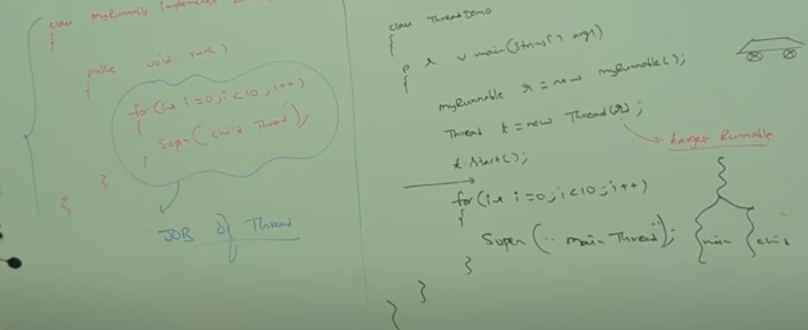 class MyRunnable implements
{
public void run()
{
for(int i=0;i<10;i++)
{
Sopln("child Thread");
}
}
}
JOB of Thread
class ThreadDemo
{
p s v main(String[] args)
{
MyRunnable r=new MyRunnable();
Thread t=new Thread(r);
target Runnable
t.start();
for(int i=0;i<10;i++)
{
Sopln("main Thread");
}
}
}
main
child